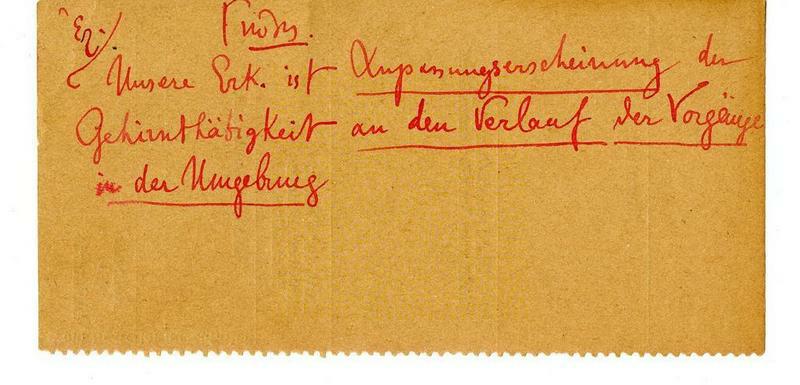 Unsere Erk. ist Anpassungserscheinung der
Gehirnthätigkeit an den Verlauf der Vorgänge
in der Umgebung